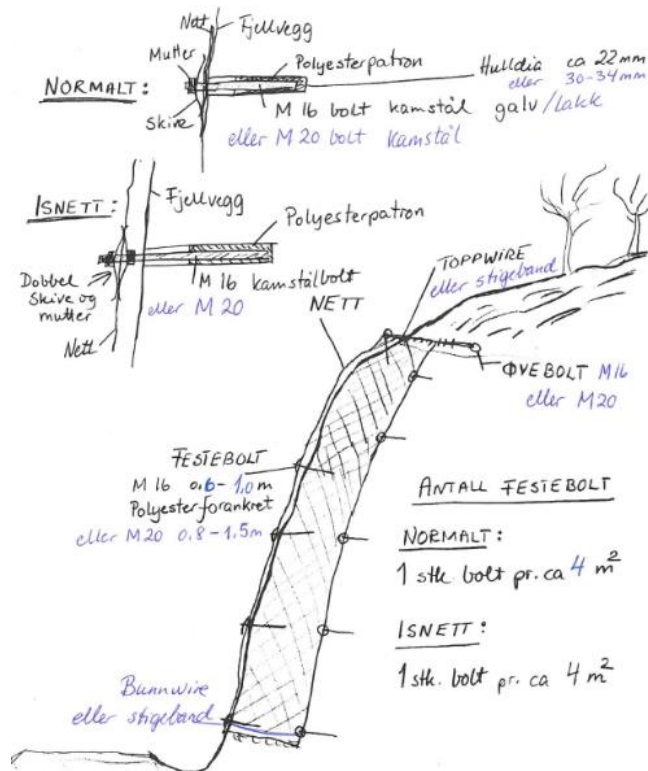 Nett
Fjellvegg
Mutter
Polyesterpatron
Hulldia ca 22mm
eller 30-34mm
NORMALT:
Skive
M 16 bolt kamstål galv/lakk
eller M 20 bolt kamstål
ISNETT:
Fjellvegg
Polyesterpatron
Dobbel
Skive og
mutter
M 16 kamstålbolt
eller M 20
Nett
NETT
TOPPWIRE
eller stigeband
ØVEBOLT M16
eller M20
FESTEBOLT
M 16 0,6-1,0 m
Polyesterforankret
eller M20 0,8-1,5m
ANTALL FESTEBOLT
NORMALT:
1 stk. bolt pr. ca 4 m²
ISNETT:
1 stk. bolt pr. ca 4 m²
Bunnwire
eller stigeband